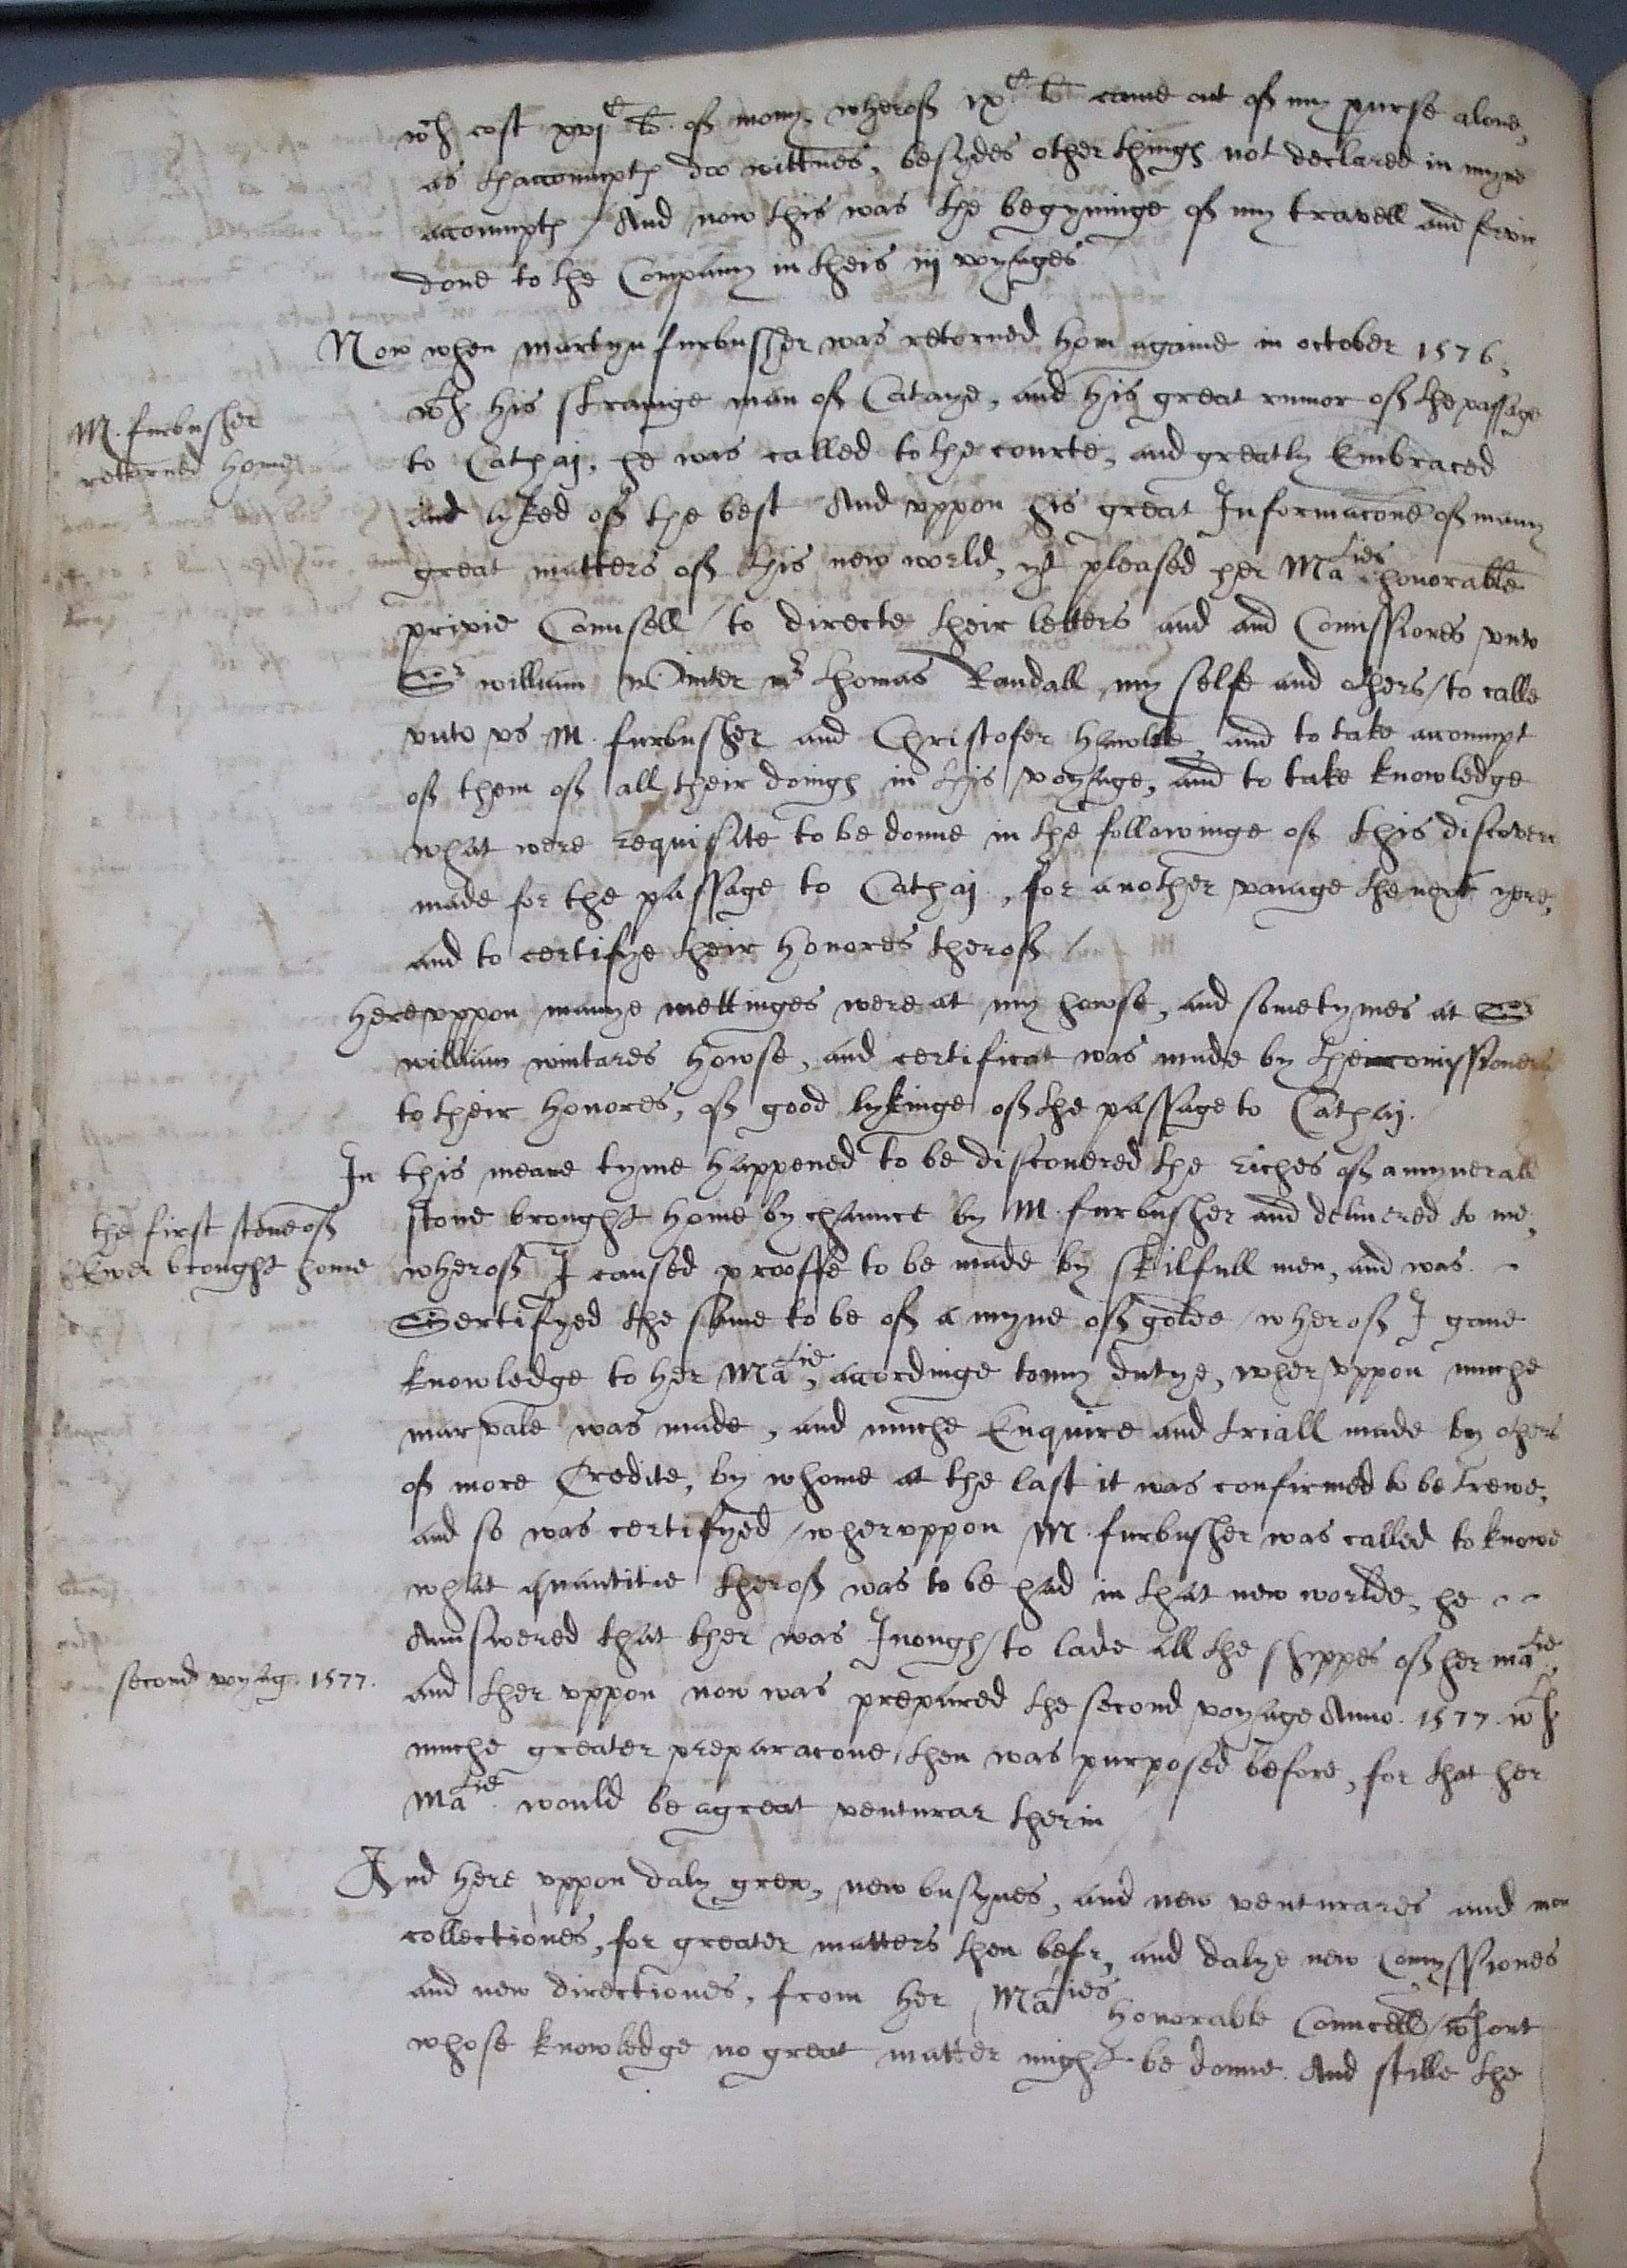 wch cost xvjC li. of mony, wherof ixC li came out of my purse alone,
as thaccomptes do wittnes, besydes other thinges not declared in myne
accomptes / And now this was the begyninge of my travell and servic
done to the Company in theis iij voyages
Now when martyn furbusher was retorned hom againe in october 1576,
M. furbusher
retorned home
wth his strainge man of Cataye, and his great rumor of the passage
to Cathaj, he was called to the courte, and greatly Embraced
and lyked of the best And vppon his great Informacone of many
great matters of this new world, yt pleased her Maties honorable
privie Counsell / to directe their letters and and Comissiones vnto
Sr william Winter mr thomas Randall, my selfe and others / to calle
vnto vs M. furbusher and Christofer Hawlle, and to take accompt
of them of all their doinges in this voyage, and to take knowledge
what were requisite to be donne in the followinge of this discovere
made for the passage to Cathaj, for another vaiage the next yere,
and to certifye their honores therof /
Herevppon manye mettinges were at my howse, and sometymes at Sr
william wintares howse, and certificat was made by the comissioners
to their honores, of good lykinge of the passage to Cathaj.
In this meane tyme happened to be discouered the riches of a mynerall
the first stone of
Ewer brought home
stone brought home by chaunce by M. furbusher and delivered to me,
wherof I caused prooffe to be made by skilfull men, and was
Sertifyed the same to be of a myne of golde / wherof I gave
knowledge to her Matie, accordinge to my dutye, wher vppon muche
marvale was made, and muche Enquire and triall made by others
of more Credite, by whome at the last it was confirmed to be trewe,
and so was certifyed / whervppon M. furbusher was called to knowe
what quantitie therof was to be had in that new worlde, he
Aunswered that ther was Inough / to lade all the shippes of her matie,
second voyag. 1577.
and ther vppon now was prepared the second voyage Anno. 1577. wth
muche greater preparacone then was purposed before, for that her
Matie would be a great venturar therin
And here vppon daly grew, new busynes, and new venturares and mon
collectiones, for greater matters then befr, and dalye new Comyssiones
and new directiones, from her Maties honorable Councell / wthout
whose knowledge no great matter might be donne. And stille the